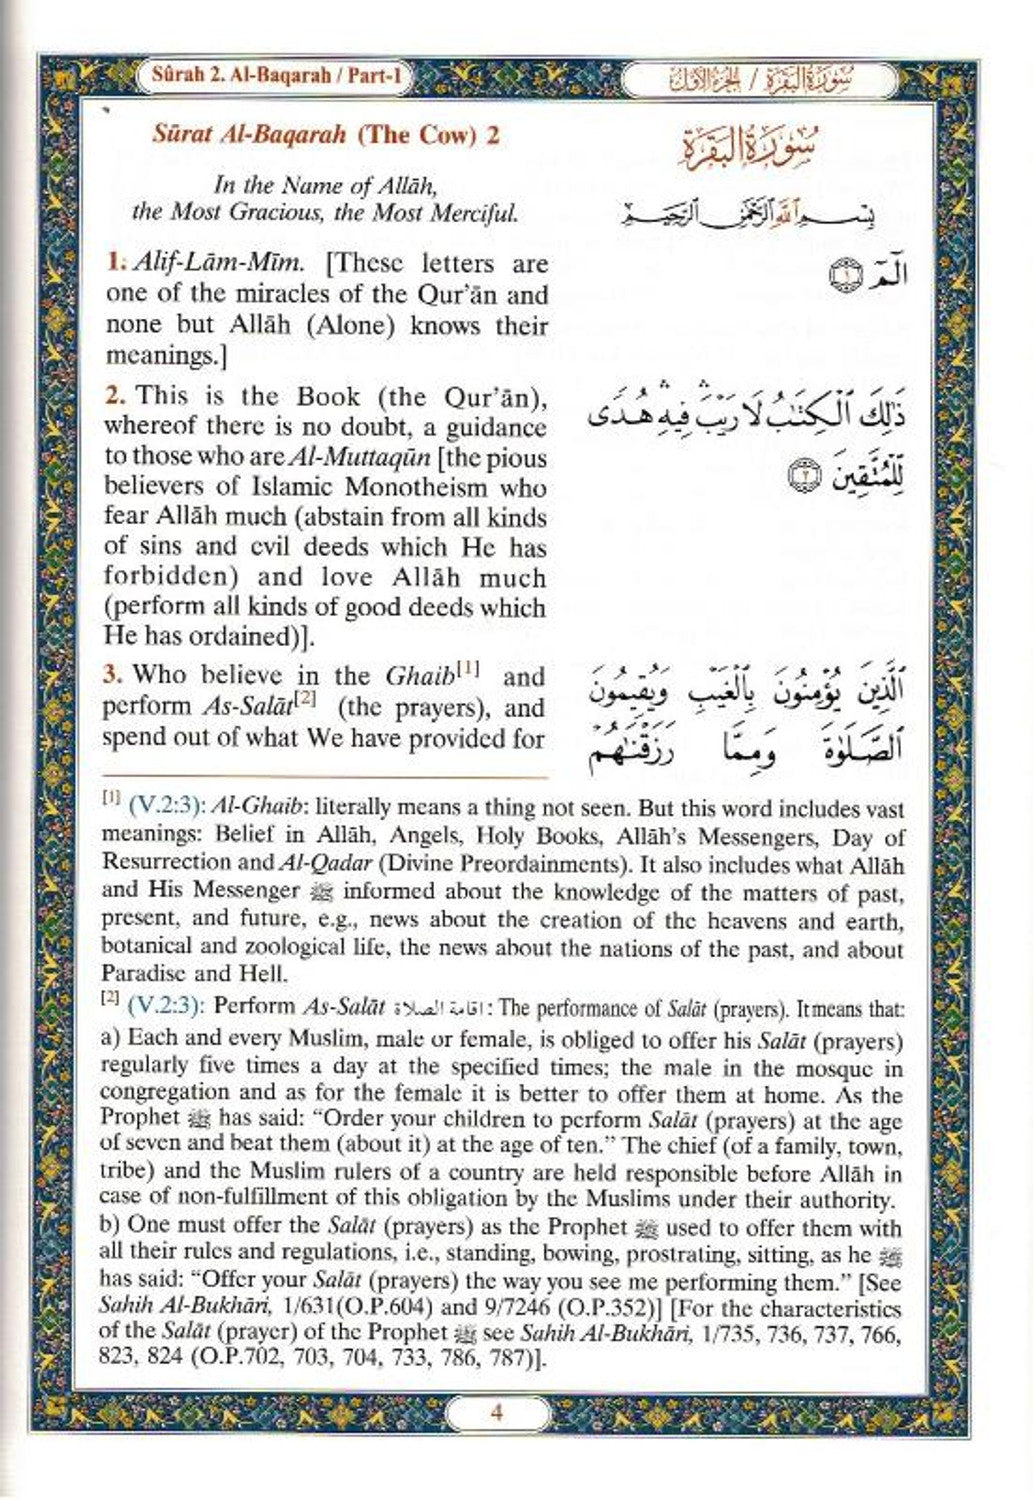 Sûrah 2. Al-Baqarah / Part-1
سُورَةُ البَقَرَة / الجُزءُ الأوّل
Sūrat Al-Baqarah (The Cow) 2
سُورَةُ البَقَرَة
In the Name of Allāh,
the Most Gracious, the Most Merciful.
بِسْمِ ٱللَّهِ ٱلرَّحْمَٰنِ ٱلرَّحِيمِ
1. Alif-Lām-Mīm. [These letters are
one of the miracles of the Qur’ān and
none but Allāh (Alone) knows their
meanings.]
الٓمٓ ١
2. This is the Book (the Qur’ān),
whereof there is no doubt, a guidance
to those who are Al-Muttaqūn [the pious
believers of Islamic Monotheism who
fear Allāh much (abstain from all kinds
of sins and evil deeds which He has
forbidden) and love Allāh much
(perform all kinds of good deeds which
He has ordained)].
ذَٰلِكَ ٱلْكِتَٰبُ لَا رَيْبَ ۛ فِيهِ ۛ هُدًى
لِّلْمُتَّقِينَ ٢
3. Who believe in the Ghaib[1] and
perform As-Salāt[2] (the prayers), and
spend out of what We have provided for
ٱلَّذِينَ يُؤْمِنُونَ بِٱلْغَيْبِ وَيُقِيمُونَ
ٱلصَّلَوٰةَ وَمِمَّا رَزَقْنَٰهُمْ
[1] (V.2:3): Al-Ghaib: literally means a thing not seen. But this word includes vast
meanings: Belief in Allāh, Angels, Holy Books, Allāh’s Messengers, Day of
Resurrection and Al-Qadar (Divine Preordainments). It also includes what Allāh
and His Messenger ﷺ informed about the knowledge of the matters of past,
present, and future, e.g., news about the creation of the heavens and earth,
botanical and zoological life, the news about the nations of the past, and about
Paradise and Hell.
[2] (V.2:3): Perform As-Salāt اقامة الصلاة: The performance of Salāt (prayers). It means that:
a) Each and every Muslim, male or female, is obliged to offer his Salāt (prayers)
regularly five times a day at the specified times; the male in the mosque in
congregation and as for the female it is better to offer them at home. As the
Prophet ﷺ has said: “Order your children to perform Salāt (prayers) at the age
of seven and beat them (about it) at the age of ten.” The chief (of a family, town,
tribe) and the Muslim rulers of a country are held responsible before Allāh in
case of non-fulfillment of this obligation by the Muslims under their authority.
b) One must offer the Salāt (prayers) as the Prophet ﷺ used to offer them with
all their rules and regulations, i.e., standing, bowing, prostrating, sitting, as he ﷺ
has said: “Offer your Salāt (prayers) the way you see me performing them.” [See
Sahih Al-Bukhāri, 1/631(O.P.604) and 9/7246 (O.P.352)] [For the characteristics
of the Salāt (prayer) of the Prophet ﷺ see Sahih Al-Bukhāri, 1/735, 736, 737, 766,
823, 824 (O.P.702, 703, 704, 733, 786, 787)].
4